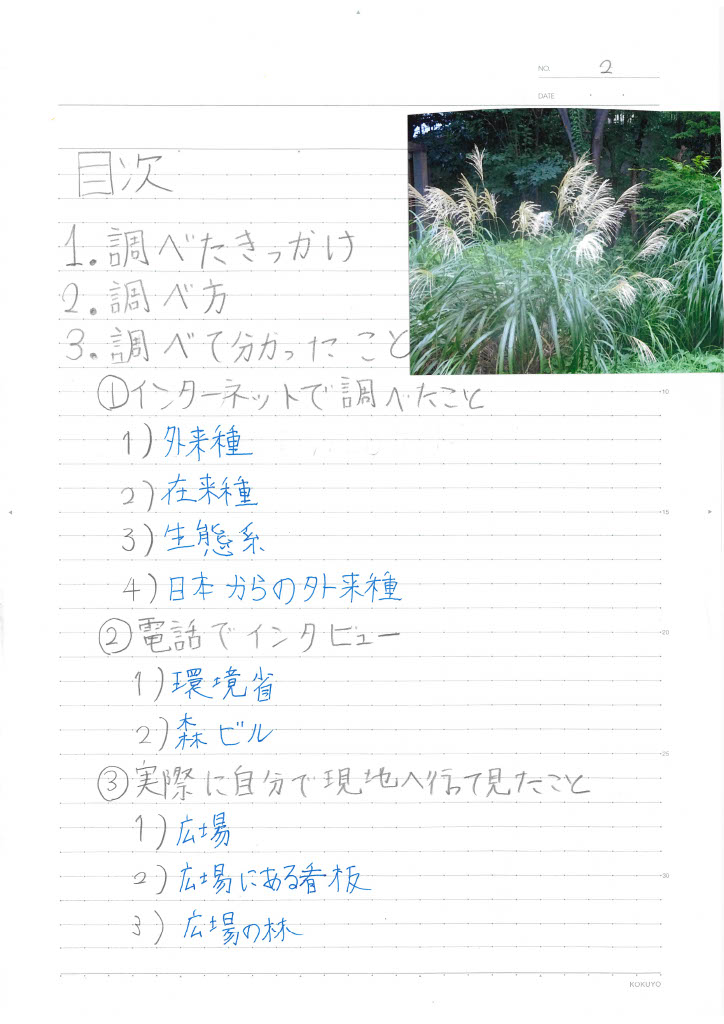 NO. 2
DATE
目次
1.調べたきっかけ
2.調べ方
3.調べて分かったこと
①インターネットで調べたこと
1)外来種
2)在来種
3)生態系
4)日本からの外来種
②電話でインタビュー
1)環境省
2)森ビル
③実際に自分で現地へ行って見たこと
1)広場
2)広場にある看板
3)広場の林
10
15
20
25
30
KOKUYO